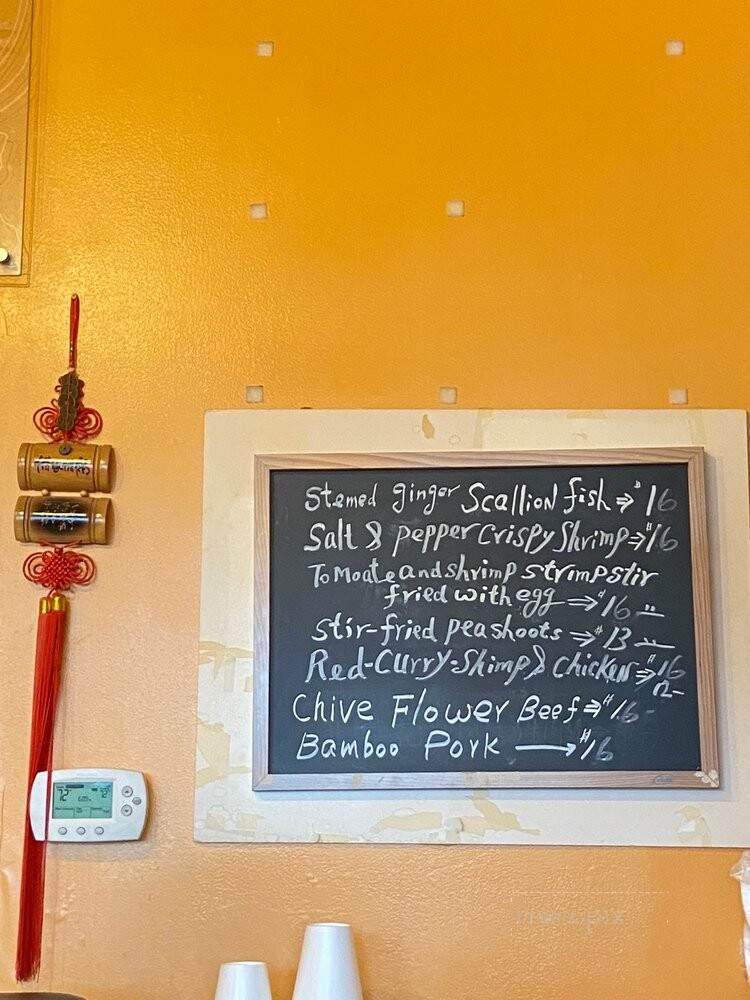 Stemed ginger Scallion fish ⇒ $16
Salt & pepper Crispy Shrimp ⇒ $16
ToMoate and shrimp strimp stir
fried with egg ⇒ $16
stir-fried peashoots ⇒ $13
Red-Curry-Shimp & Chicken ⇒ $16
12-
Chive Flower Beef ⇒ $16-
Bamboo Pork → $16
72